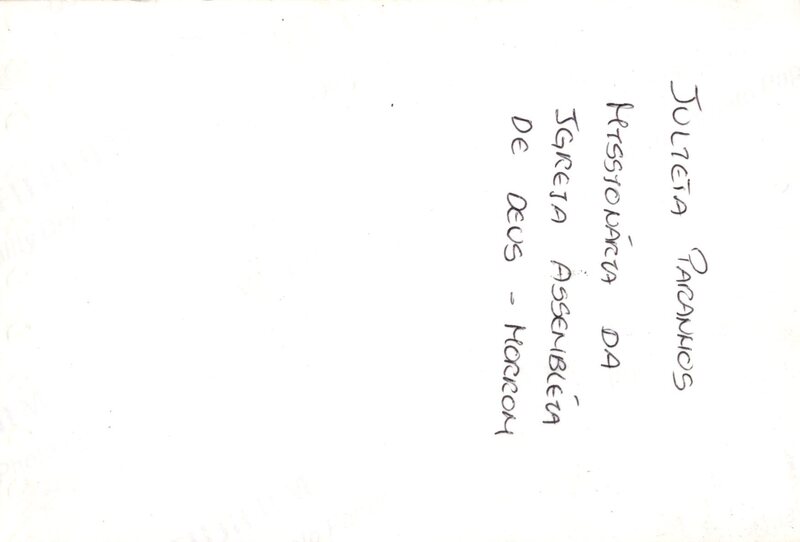 JULIETA PARANHOS
MISSIONÁRIA DA
IGREJA ASSEMBLÉIA
DE DEUS - MORROM